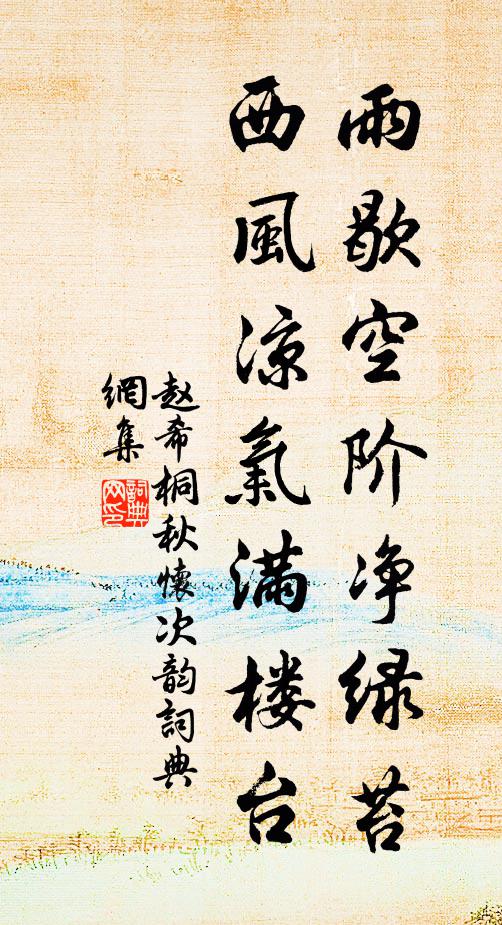 雨歇空阶净绿苔
西風凉氣满楼台
赵希桐秋懷次韵詞典
網集
詞典
网印